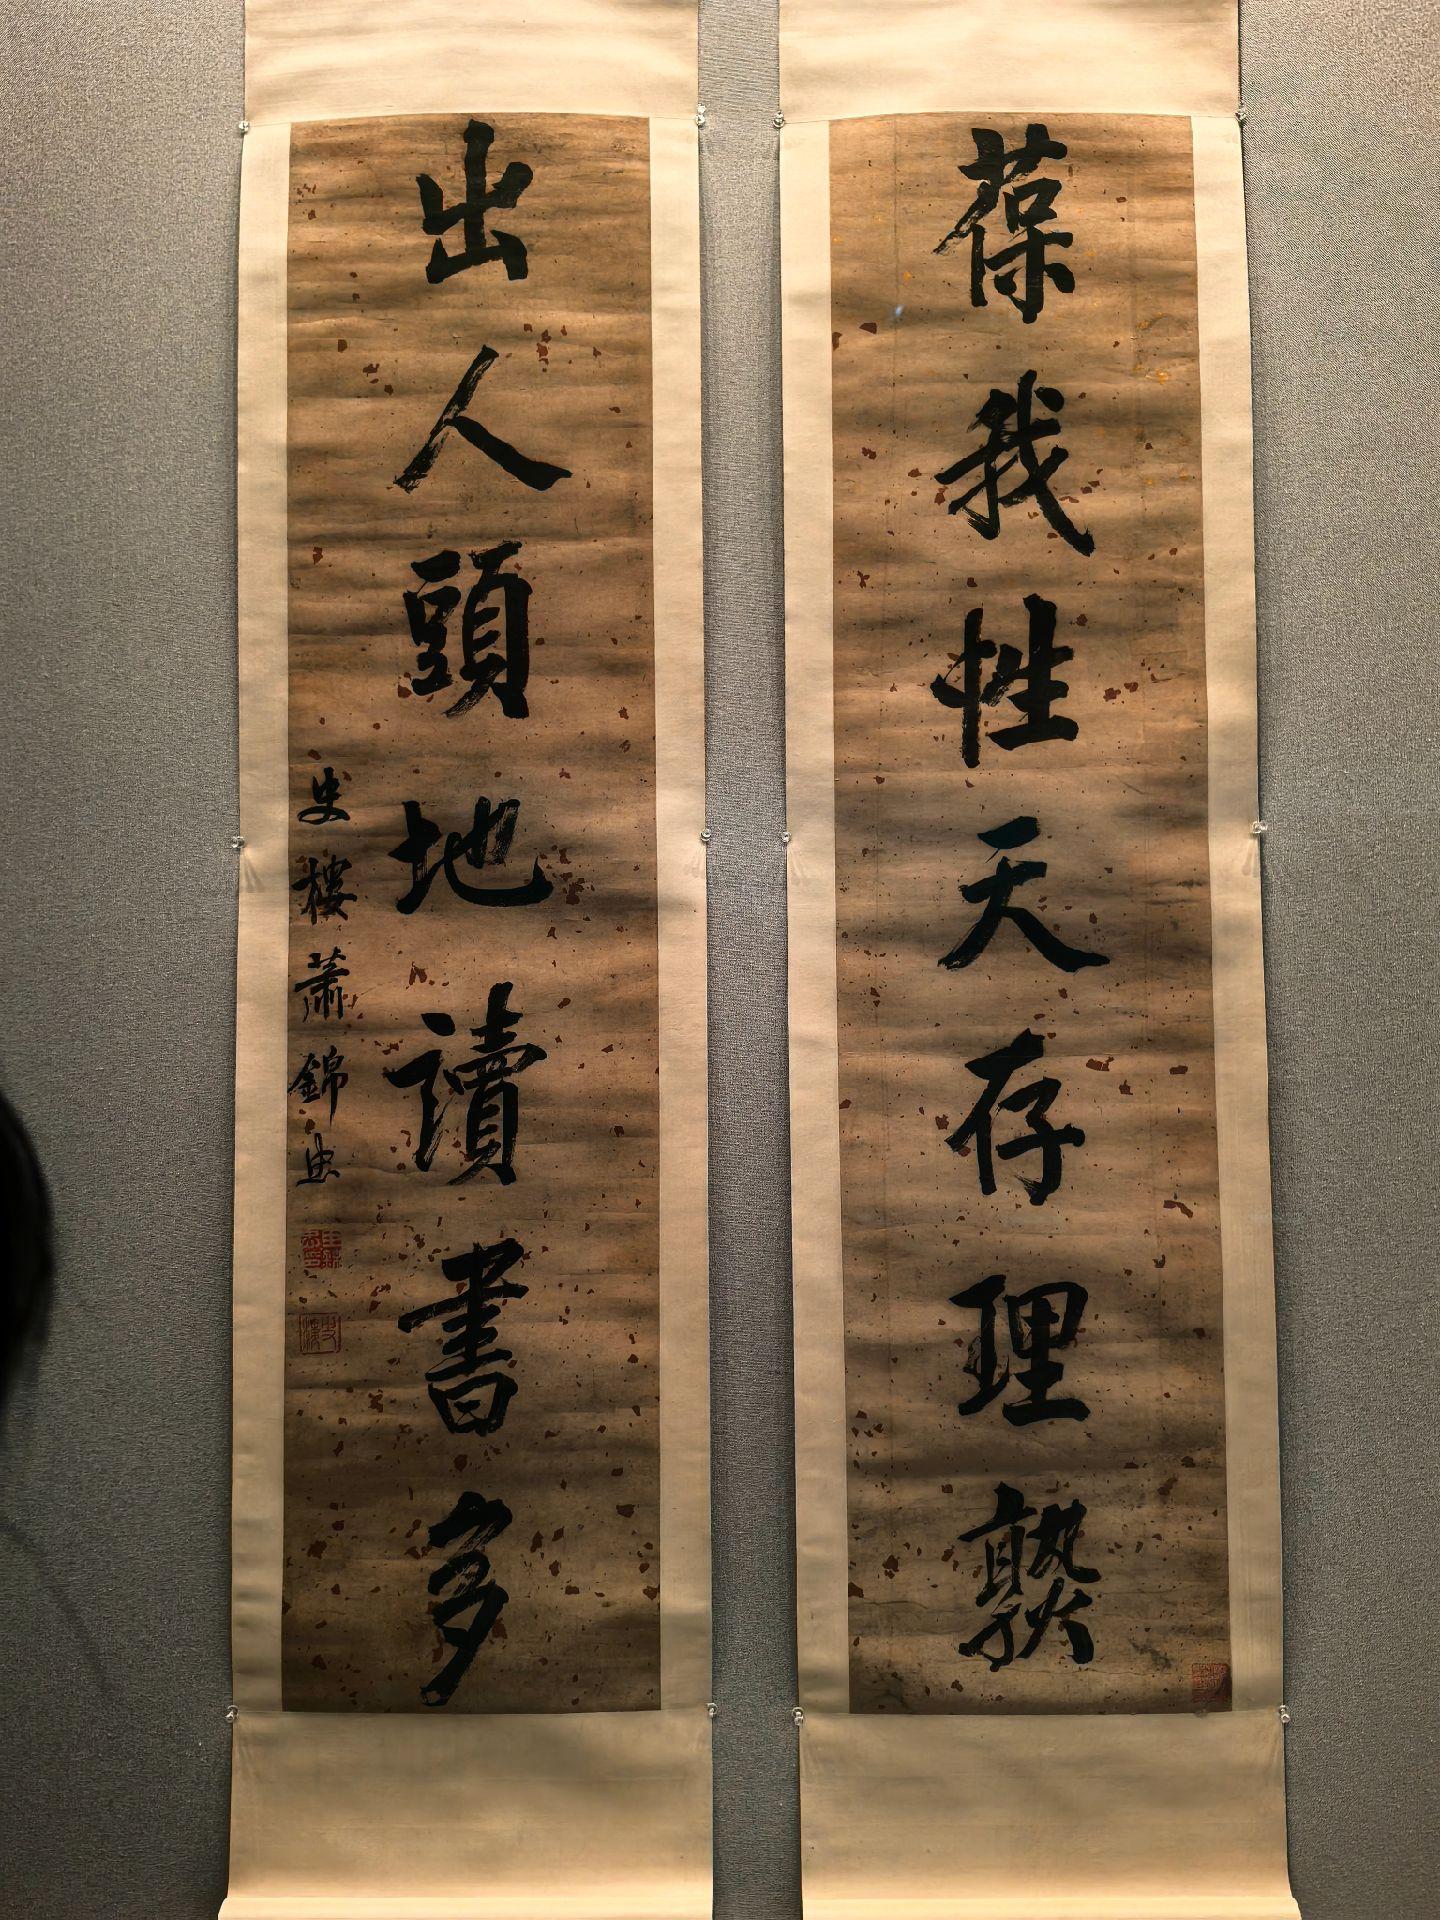 葆我性天存理熟
出人頭地讀書多
史樓蕭錦忠